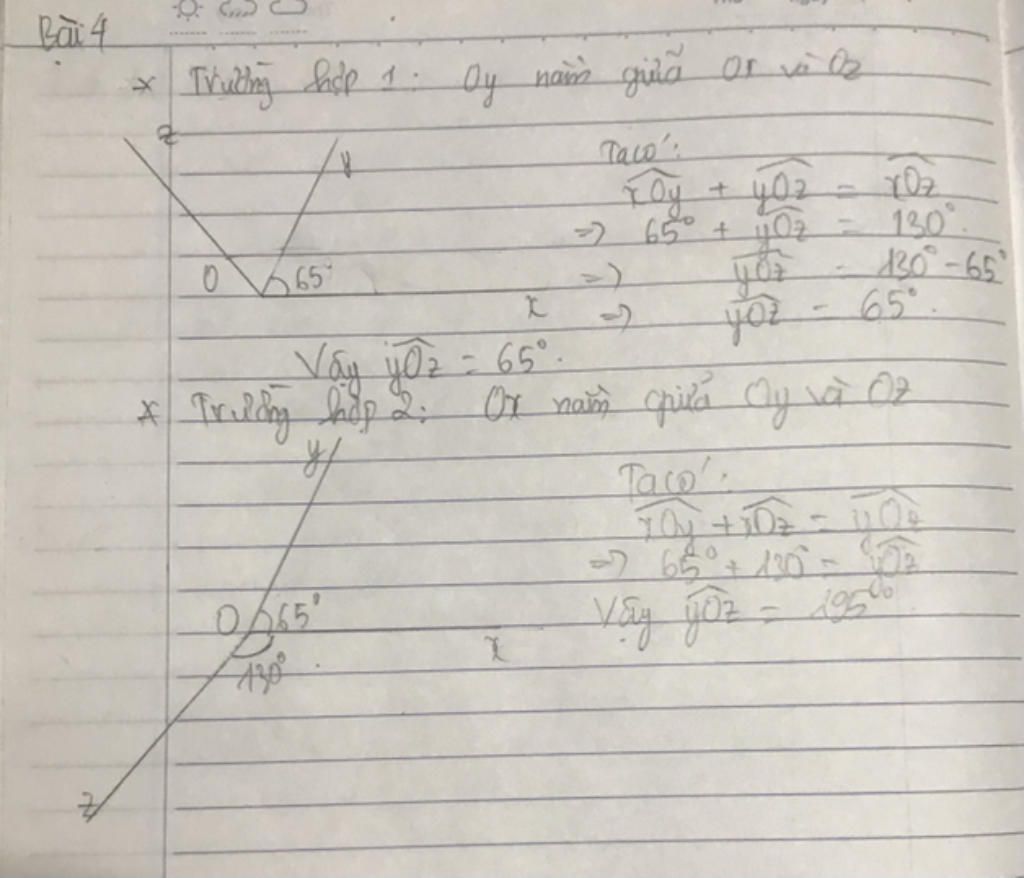 Bài 4
* Trường hợp 1: Oy nằm giữa Ox và Oz
z
y
Ta có:
xOy + yOz = xOz
=> 65° + yOz = 130°.
O 65°
=> yOz = 130° - 65°
x
=> yOz = 65°.
Vậy yOz = 65°.
* Trường hợp 2: Ox nằm giữa Oy và Oz
y
Ta có:
xOy + xOz = yOz
=> 65° + 130° = yOz
O 65°
Vậy yOz = 195°
x
130°
z